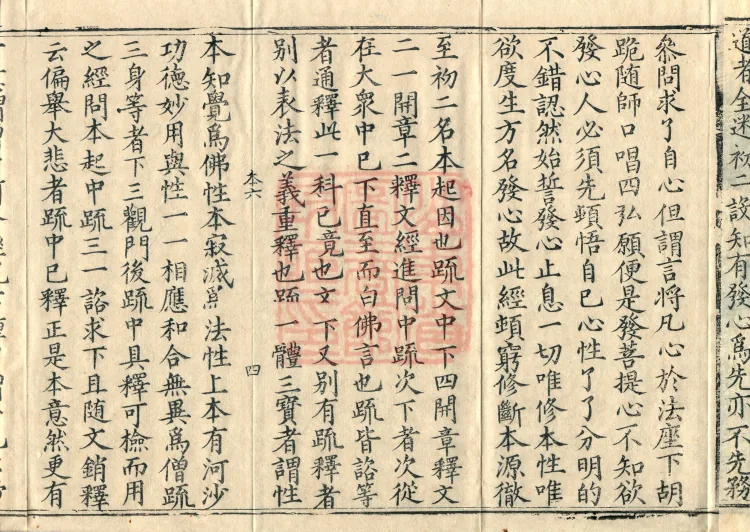 道者全迷初二設知有發心爲先亦不先務
叅問求了自心但謂言将凡心於法座下胡
跪随師口唱四弘願便是發菩提心不知欲
發心人必須先頓悟自己心性了了分明的
不錯認然始誓發心止息一切唯修本性唯
欲度生方名發心故此經頓窮修斷本源徹
至初二名本起因也䟽文中下四開章釋文
二一開章二釋文經進問中䟽次下者次從
在大衆中已下直至而白佛言也䟽皆諮等
者通釋此一科已竟也文下又别有䟽釋者
别以表法之義重釋也䟽一體三寳者謂性
本知覺爲佛性本寂滅爲法性上本有河沙
功德妙用與性一一相應和合無異爲僧䟽
三身等者下三觀門後䟽中具釋可檢而用
之經問本起中䟽三一諮求下且随文銷釋
云偏舉大悲者䟽中已釋正是本意然更有
本六
四